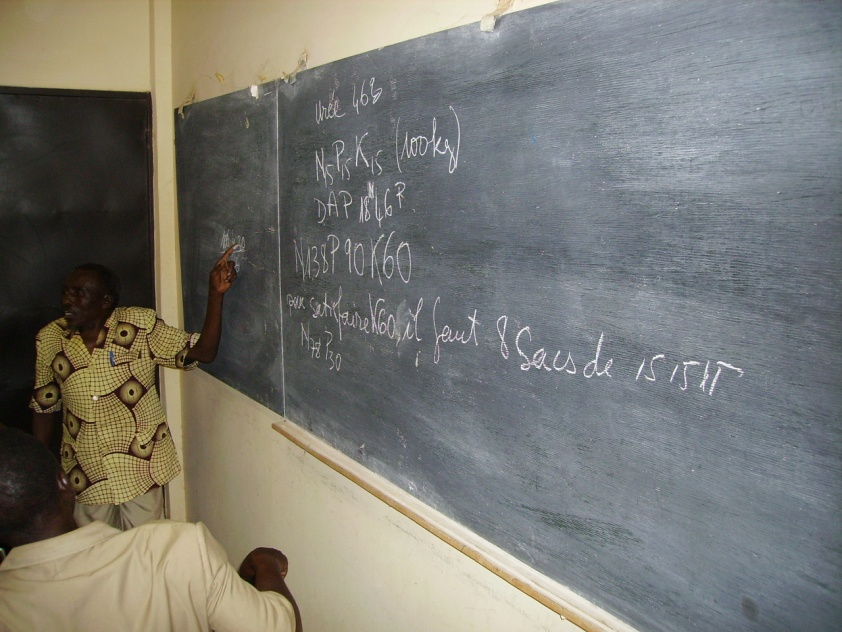 Urée 46
N5 P15 K15 (100kg)
DAP 18N 46P
N138 P90 K60
pour satisfaire K60, il faut 8 sacs de 15 15 15
N78 P30